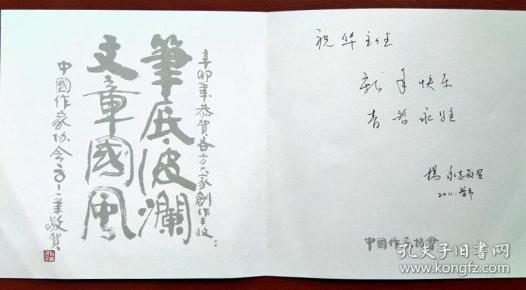 辛卯年恭賀各方大家創作豐收
筆底波瀾
文章國風
中國作家协会二〇一一年敬賀
祝华主任
新年快乐
青春永驻
楊
2011.春节
中国作家协會
孔夫子旧书网
www.kongfz.com